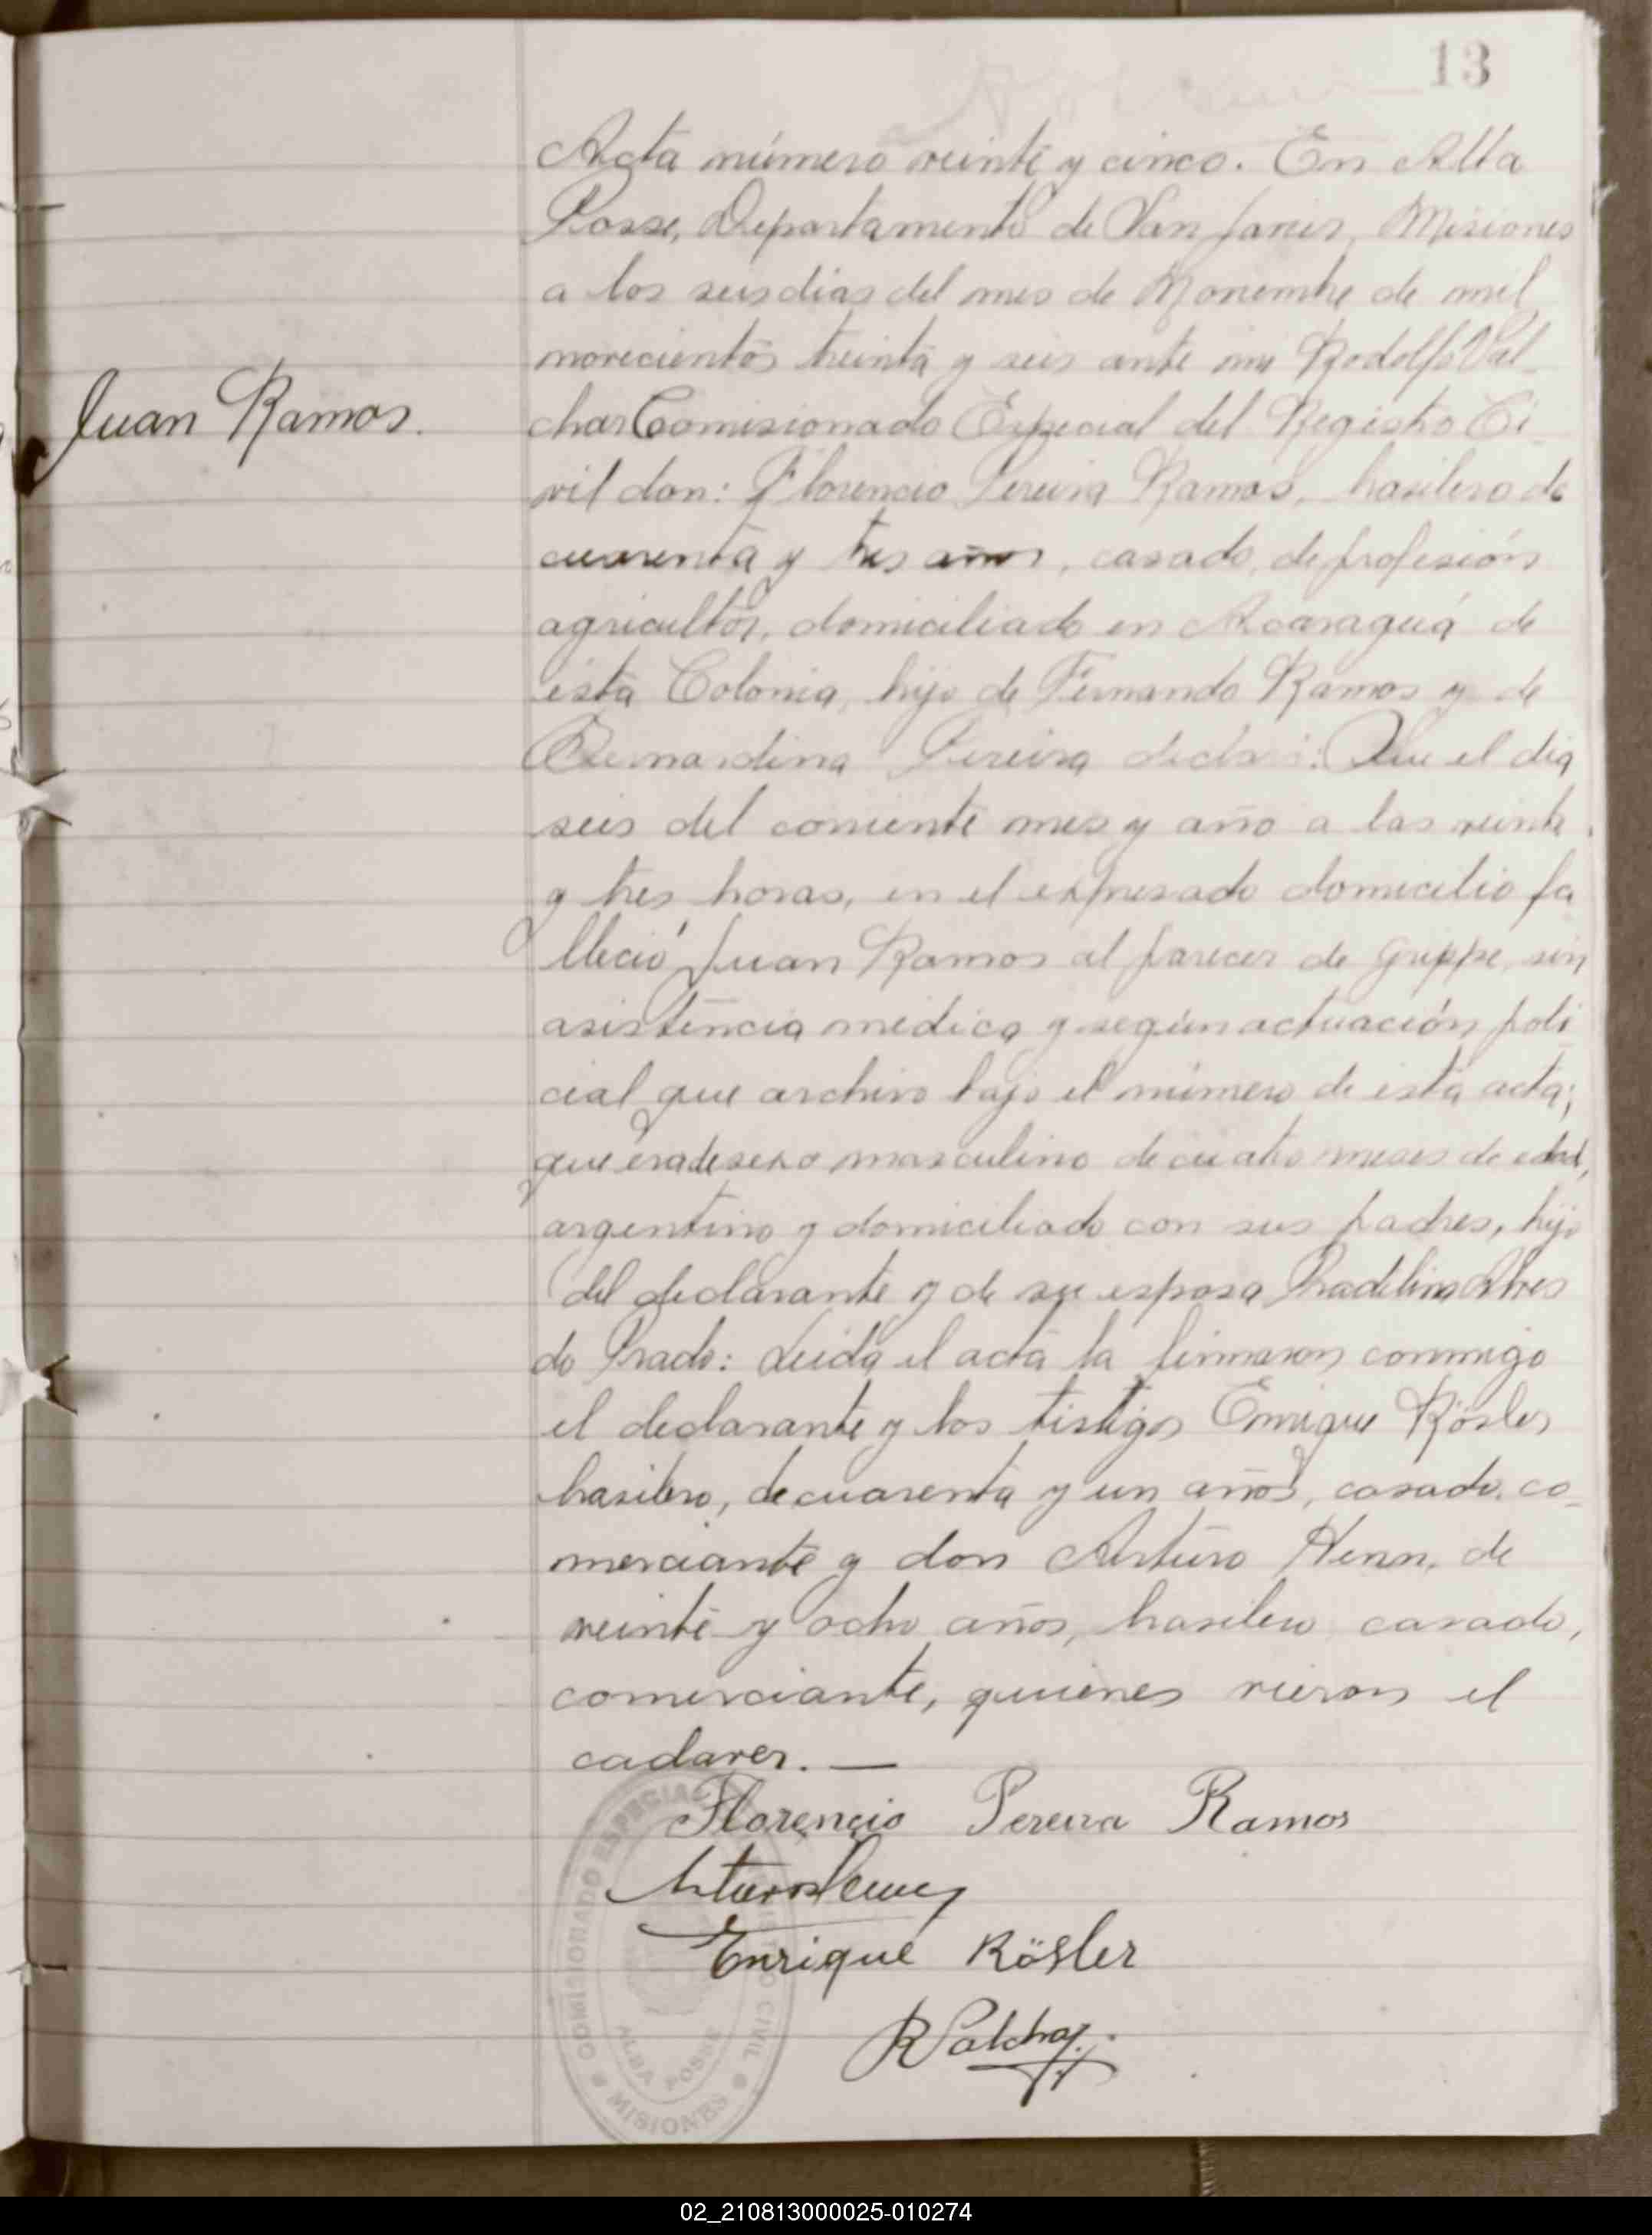 13
Acta número veinte y cinco. En Alba
Posse, Departamento de San Javier, Misiones
a los seis dias del mes de Noviembre de mil
novecientos treinta y seis ante mi Rodolfo Val-
char Comisionado Especial del Registro Ci-
vil don: Florencio Pereira Ramos, brasilero de
cuarenta y tres años, casado, de profesión
agricultor, domiciliado en Acaraguá de
esta Colonia, hijo de Fernando Ramos y de
Bernardina Pereira declaró: Que el dia
seis del corriente mes y año a las veinte
y tres horas, en el expresado domicilio fa
lleció Juan Ramos al parecer de Grippe, sin
asistencia medica y según actuación poli
cial que archivo bajo el número de esta acta;
que era de sexo masculino de cuatro meses de edad,
argentino y domiciliado con sus padres, hijo
del declarante y de su esposa Pradelina Alves
do Prado: Leida el acta la firmaron conmigo
el declarante y los testigos Enrique Rösler
brasilero, de cuarenta y un años, casado, co-
merciante y don Arturo Henn, de
veinte y ocho años, brasilero casado,
comerciante, quienes vieron el
cadaver. —
Juan Ramos.
Florencio Pereira Ramos
Arturo Henn
Enrique Rösler
R Valchar
COMISIONADO ESPECIAL
REGISTRO CIVIL
ALBA POSSE
MISIONES
02_210813000025-010274